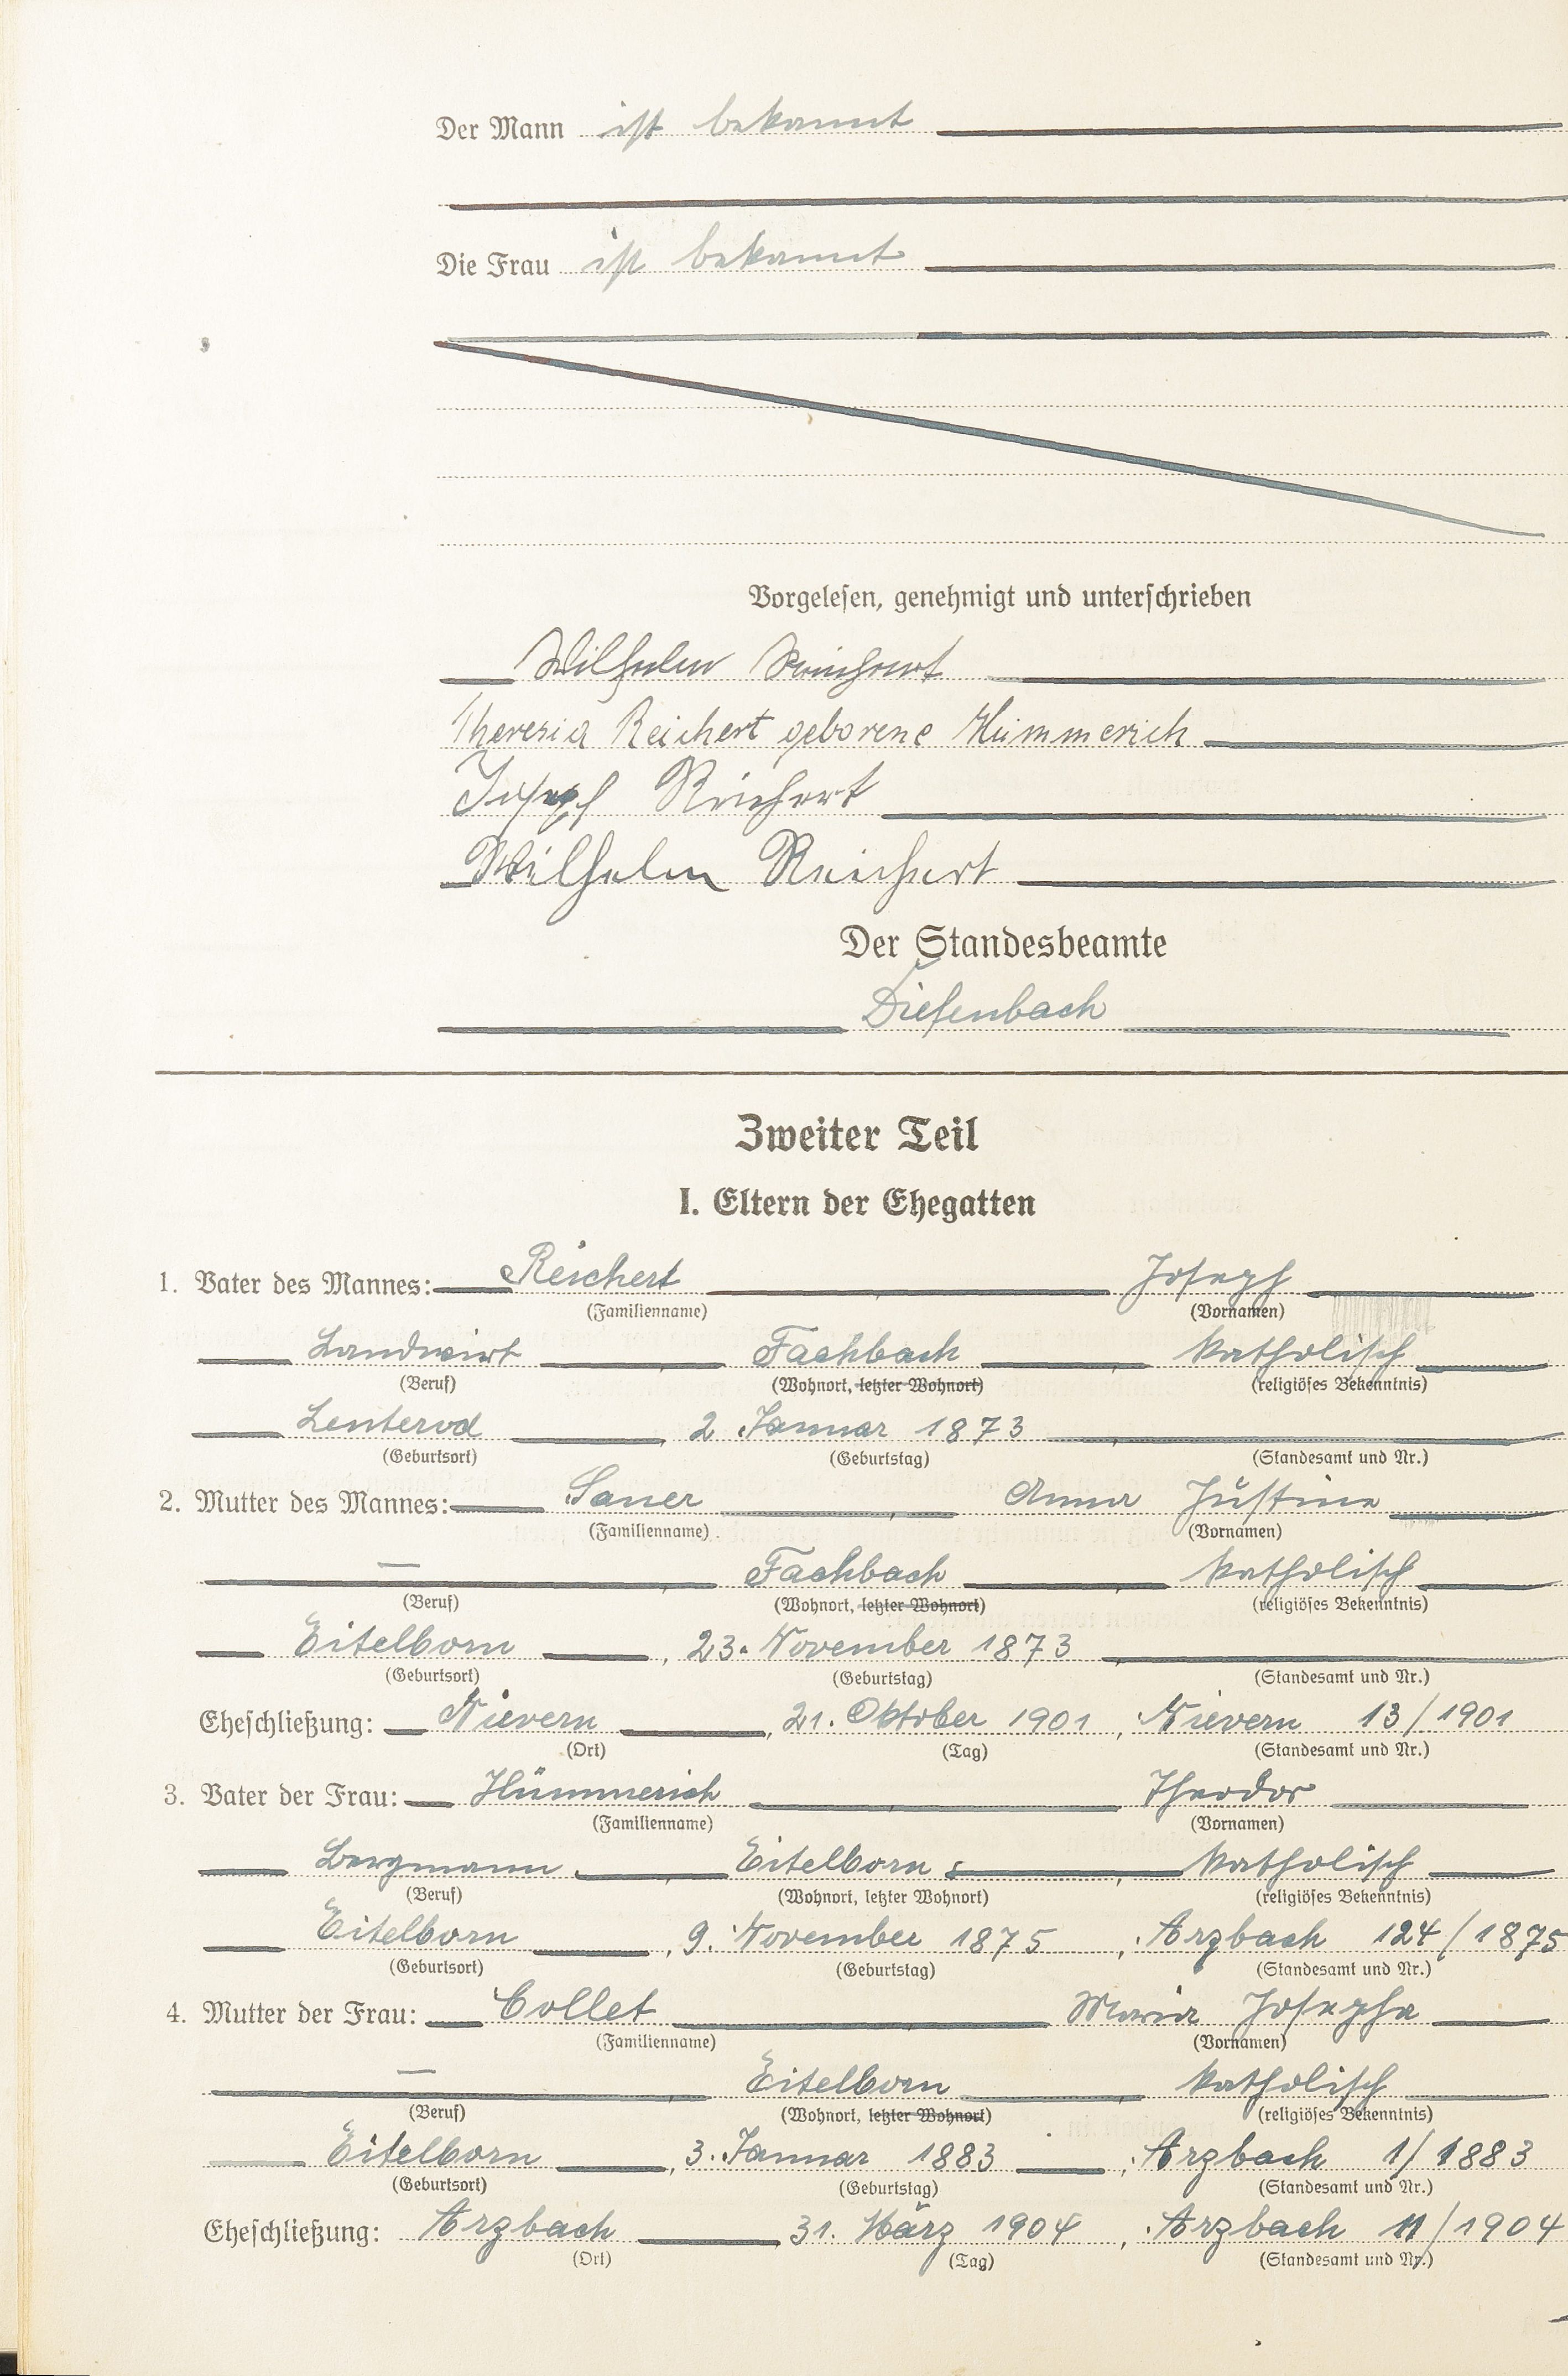 Der Mann ist bekannt
Die Frau ist bekannt
Vorgelesen, genehmigt und unterschrieben
Wilhelm Reichert
Theresia Reichert geborene Hümmerich
Joseph Reichert
Wilhelm Reichert
Der Standesbeamte
Diefenbach
Zweiter Teil
I. Eltern der Ehegatten
1. Vater des Mannes: Reichert Joseph
(Familienname) (Vornamen)
Landwirt Fachbach katholisch
(Beruf) (Wohnort, letzter Wohnort) (religiöses Bekenntnis)
Lenterod 2. Januar 1873
(Geburtsort) (Geburtstag) (Standesamt und Nr.)
2. Mutter des Mannes: Sauer Anna Justine
(Familienname) (Vornamen)
— Fachbach katholisch
(Beruf) (Wohnort, letzter Wohnort) (religiöses Bekenntnis)
Eitelborn, 23. November 1873
(Geburtsort) (Geburtstag) (Standesamt und Nr.)
Eheschließung: Nievern, 21. Oktober 1901, Nievern 13/1901
(Ort) (Tag) (Standesamt und Nr.)
3. Vater der Frau: Hümmerich Theodor
(Familienname) (Vornamen)
Bergmann Eitelborn katholisch
(Beruf) (Wohnort, letzter Wohnort) (religiöses Bekenntnis)
Eitelborn, 9. November 1875, Arzbach 124/1875
(Geburtsort) (Geburtstag) (Standesamt und Nr.)
4. Mutter der Frau: Collet Maria Josepha
(Familienname) (Vornamen)
— Eitelborn katholisch
(Beruf) (Wohnort, letzter Wohnort) (religiöses Bekenntnis)
Eitelborn, 3. Januar 1883, Arzbach 1/1883
(Geburtsort) (Geburtstag) (Standesamt und Nr.)
Eheschließung: Arzbach 31. März 1904, Arzbach 11/1904
(Ort) (Tag) (Standesamt und Nr.)